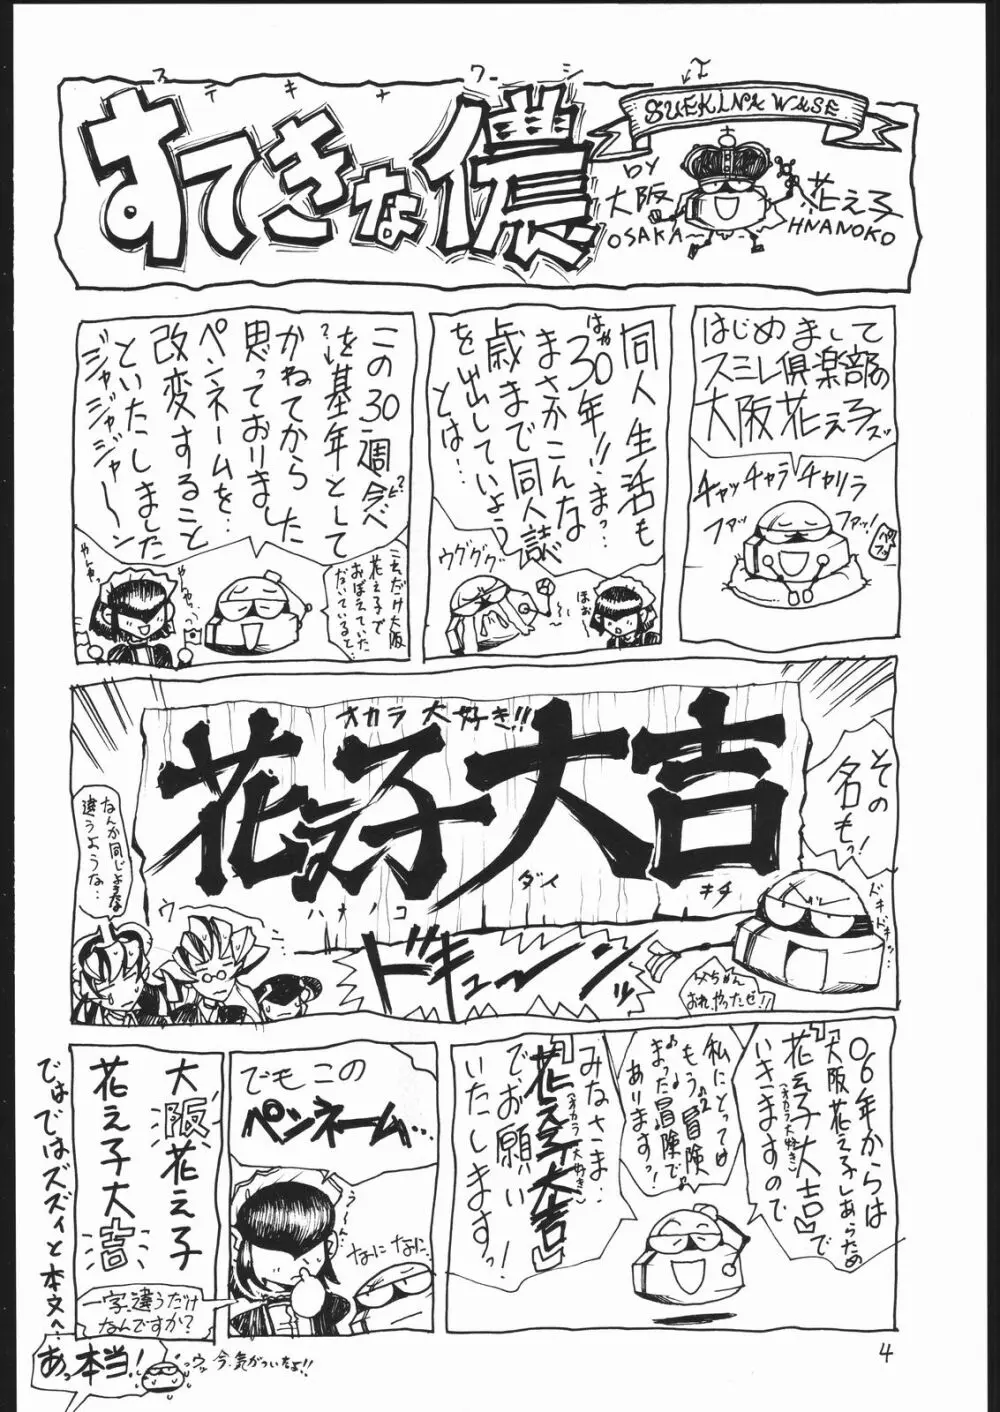 ステキナワシ
すてきな儂
SUEKINA WASE
BY
大阪
花え子
OSAKA
HNANOKO
はじめまして
スミレ倶楽部の
大阪花え子ズ
チャッチャラチャリラ
ファッ
ファッ!
同人生活も
はや30年!!ま…っ
まさかこんな
歳まで同人誌
を出していよう
とは…
ウググググ
ほお
この30週今べ
を基年として
かねてから
思っておりました
ペンネームを…
改変すること
といたしました
ジャジャジャジャ〜〜ン
これだけ大阪
花え子で
おぼえていた
だいていると…
その
名もっ!
オカラ大好き!!
花え子大吉
ハナノコ
ダイ
キチ
なんか同じような
違うような…
ウ〜
ドキュ〜〜ンッ
ドキドキッ
父ちゃん
おれ、やったぜ!!
06年からは
『大阪花え子』あらため
『花え子大吉』で
(オカラ大好き)
いきますので
私にとっては
もうの2冒険
まった冒険で
あります?!
みなさま…
『花え子大吉』
(オカラ大好き)
でお願い
いたしますっ!
でもこの
ペンネーム…
う〜ん…
なになに
大阪花え子
花え子大吉
一字、違うだけ
なんですか?
ではではズズィと本文へ…
あっ本当!
ウッ今、気がついたよ!!
4